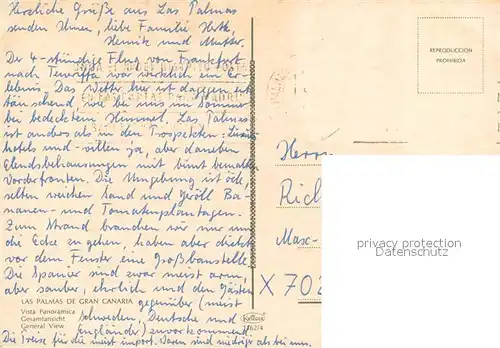 Herzliche Grüße aus Las Palmas
senden Ihnen, liebe Familie
und Mutter.
Der 4-stündige Flug von Frankfurt
nach Teneriffa war wirklich ein Er-
lebnis. Das Wetter hier ist dagegen ent-
täuschend, wie bei uns im Sommer
bei bedecktem Himmel. Las Palmas
ist anders als in den Prospekten: Luxus-
hotels und -villen ja, aber daneben
Elendsbehausungen mit bunt bemalten
Vorderfronten. Die Umgebung ist öde,
selten weichen Sand und Geröll Ba-
nanen- und Tomatenplantagen.
Zum Strand brauchen wir nur um
die Ecke zu gehen, haben aber direkt
vor dem Fenster eine Großbaustelle.
Die Spanier sind zwar meist arm,
aber sauber, ehrlich und den Gästen
gegenüber (meist
Schweden, Deutsche und
Engländer) zuvorkommend.
Die Preise für die meist import. Waren sind niedriger als bei uns.
LAS PALMAS DE GRAN CANARIA
Vista Panorámica
Gesamtansicht
General View
REPRODUCCION
PROHIBIDA
Herrn
Rich
Max-
X 702
privacy protection
Datenschutz